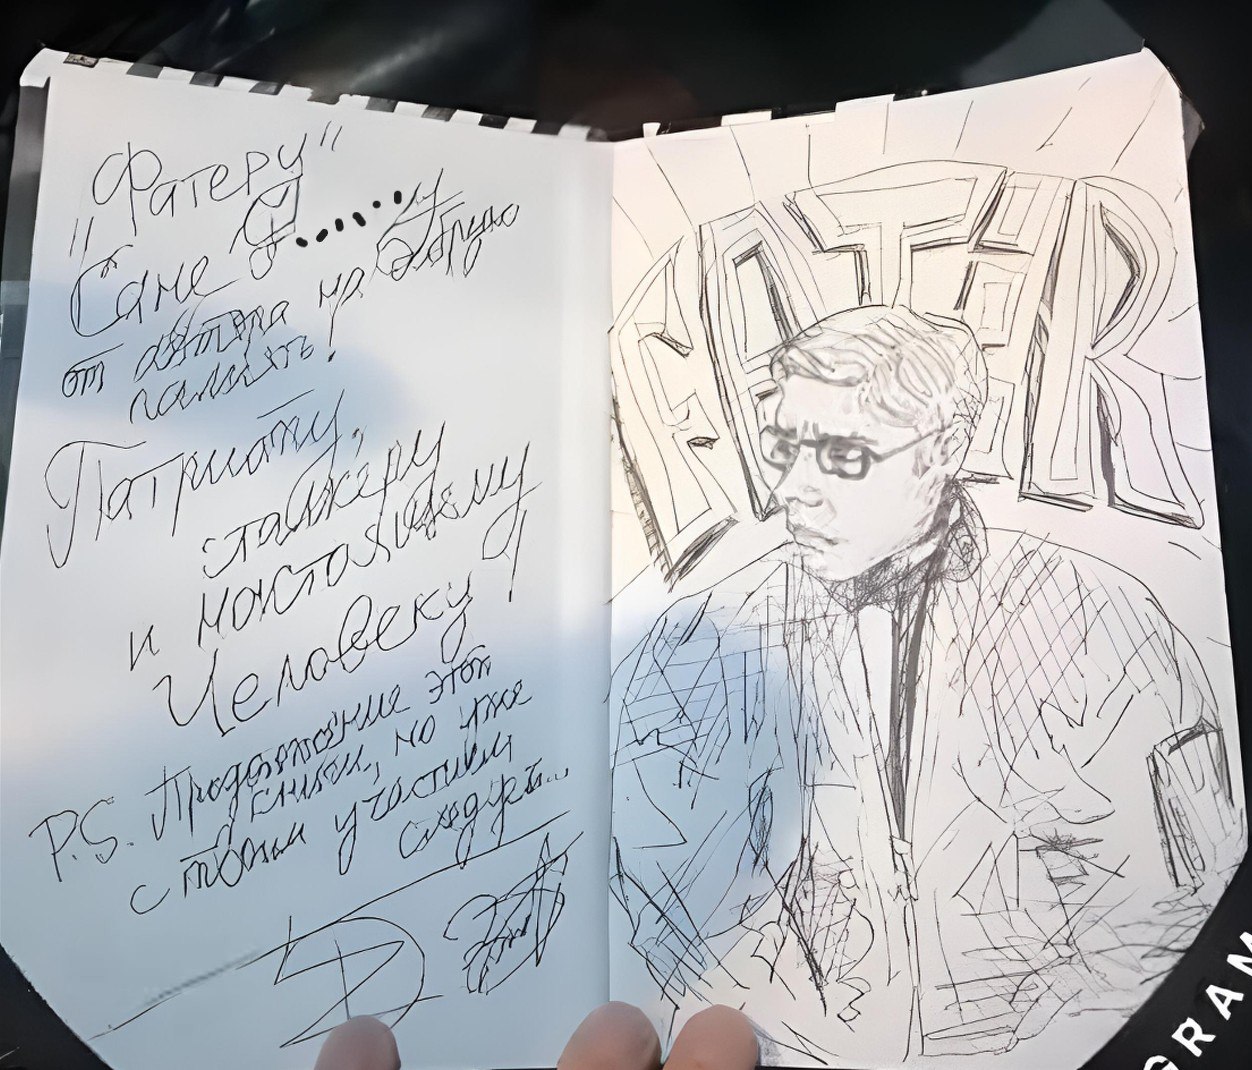 "Фатеру"
Сане С......у
от автора на добрую
память!
Патриоту,
сталкеру
и настоящему
Человеку!
P.S. Продолжение этой
книги, но уже
с твоим участием
следует...
FATER
GRAM